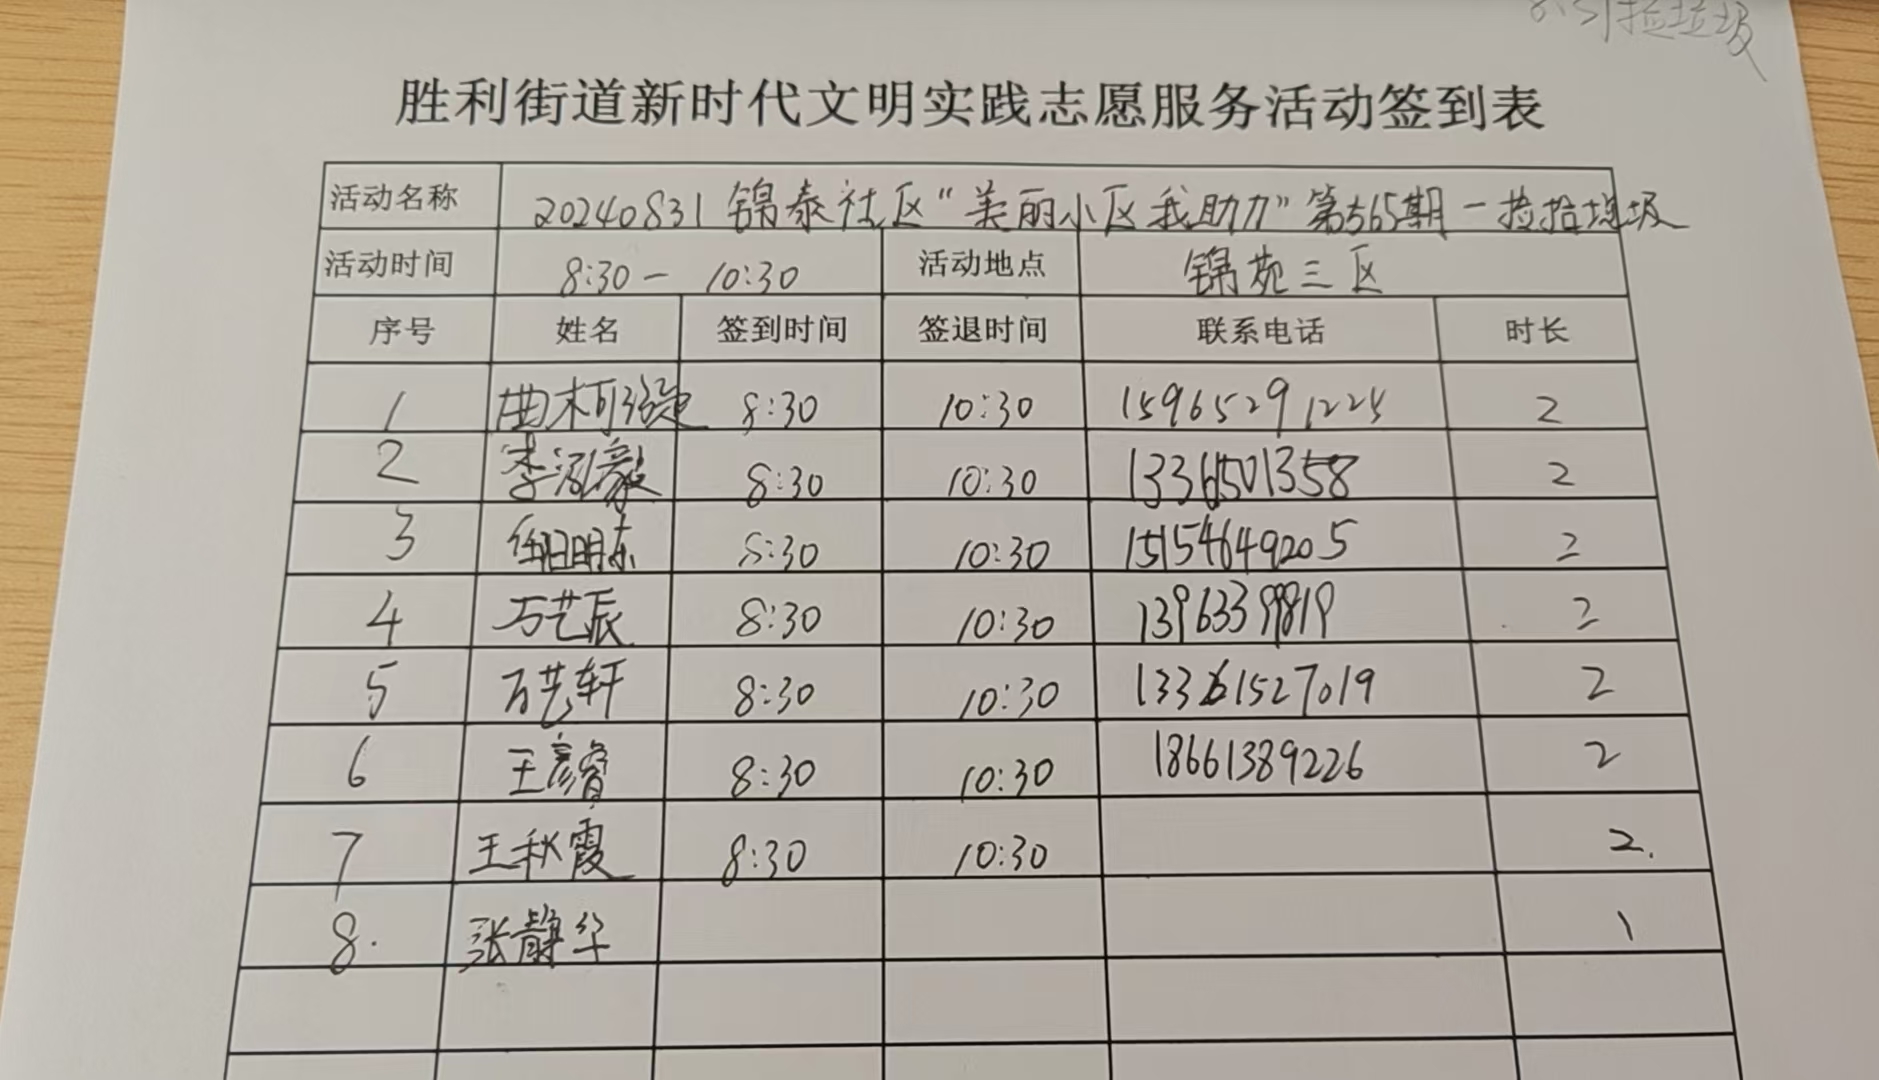 8.31捡垃圾
胜利街道新时代文明实践志愿服务活动签到表
活动名称 20240831 锦泰社区“美丽小区我助力”第565期-捡拾垃圾
活动时间 8:30 - 10:30 活动地点 锦苑三区
序号 姓名 签到时间 签退时间 联系电话 时长
1 曲柯 8:30 10:30 15965291225 2
2 李泓毅 8:30 10:30 2
3 8:30 10:30 15154649205 2
4 万艺辰 8:30 10:30 2
5 万艺轩 8:30 10:30 13361527019 2
6 王彦睿 8:30 10:30 18661389226 2
7 王秋霞 8:30 10:30 2.
8. 张静华 1